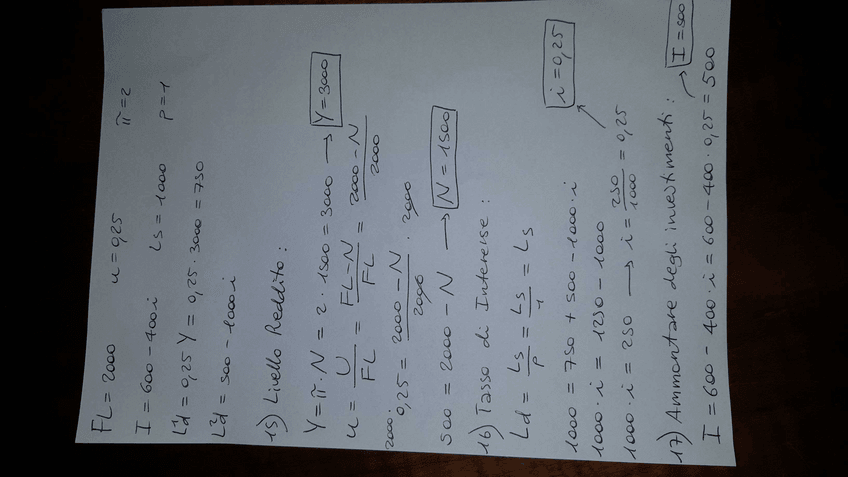 FL = 2000 u = 0,25 π = 2
I = 600 - 400i Ls = 1000 P = 1
L¹d = 0,25 Y = 0,25 · 3000 = 750
L²d = 500 - 1000 i
15) Livello Reddito:
Y = π · N = 2 · 1500 = 3000 → Y = 3000
u = U/FL = FL - N/FL = 2000 - N/2000
2000 · 0,25 = 2000 - N/2000 · 2000
500 = 2000 - N → N = 1500
16) Tasso di Interesse:
Ld = Ls/P = Ls/1 = Ls
1000 = 750 + 500 - 1000 · i
1000 · i = 1250 - 1000
1000 · i = 250 → i = 250/1000 = 0,25
i = 0,25
17) Ammontare degli investimenti: → I = 500
I = 600 - 400 · i = 600 - 400 · 0,25 = 500